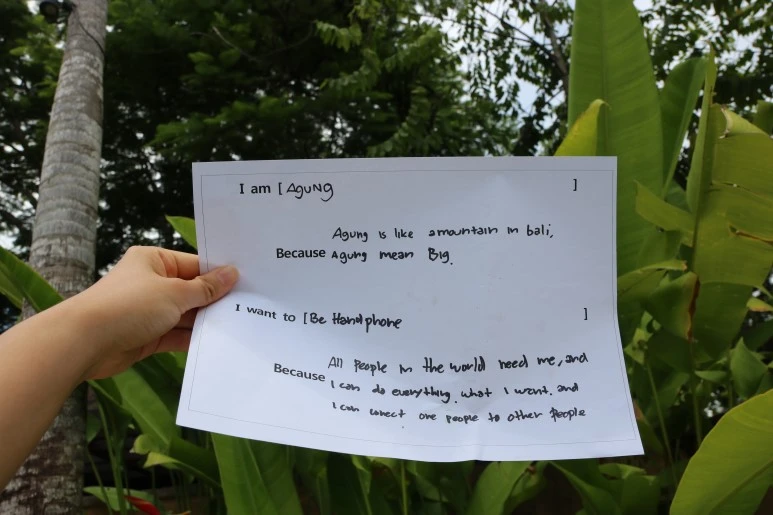 I am [ Agung ]
Agung is like a mountain in bali,
Because Agung mean Big.
I want to [ Be Handphone ]
All People in the world need me, and
Because I can do everything. what I want. and
I can conect one people to other people